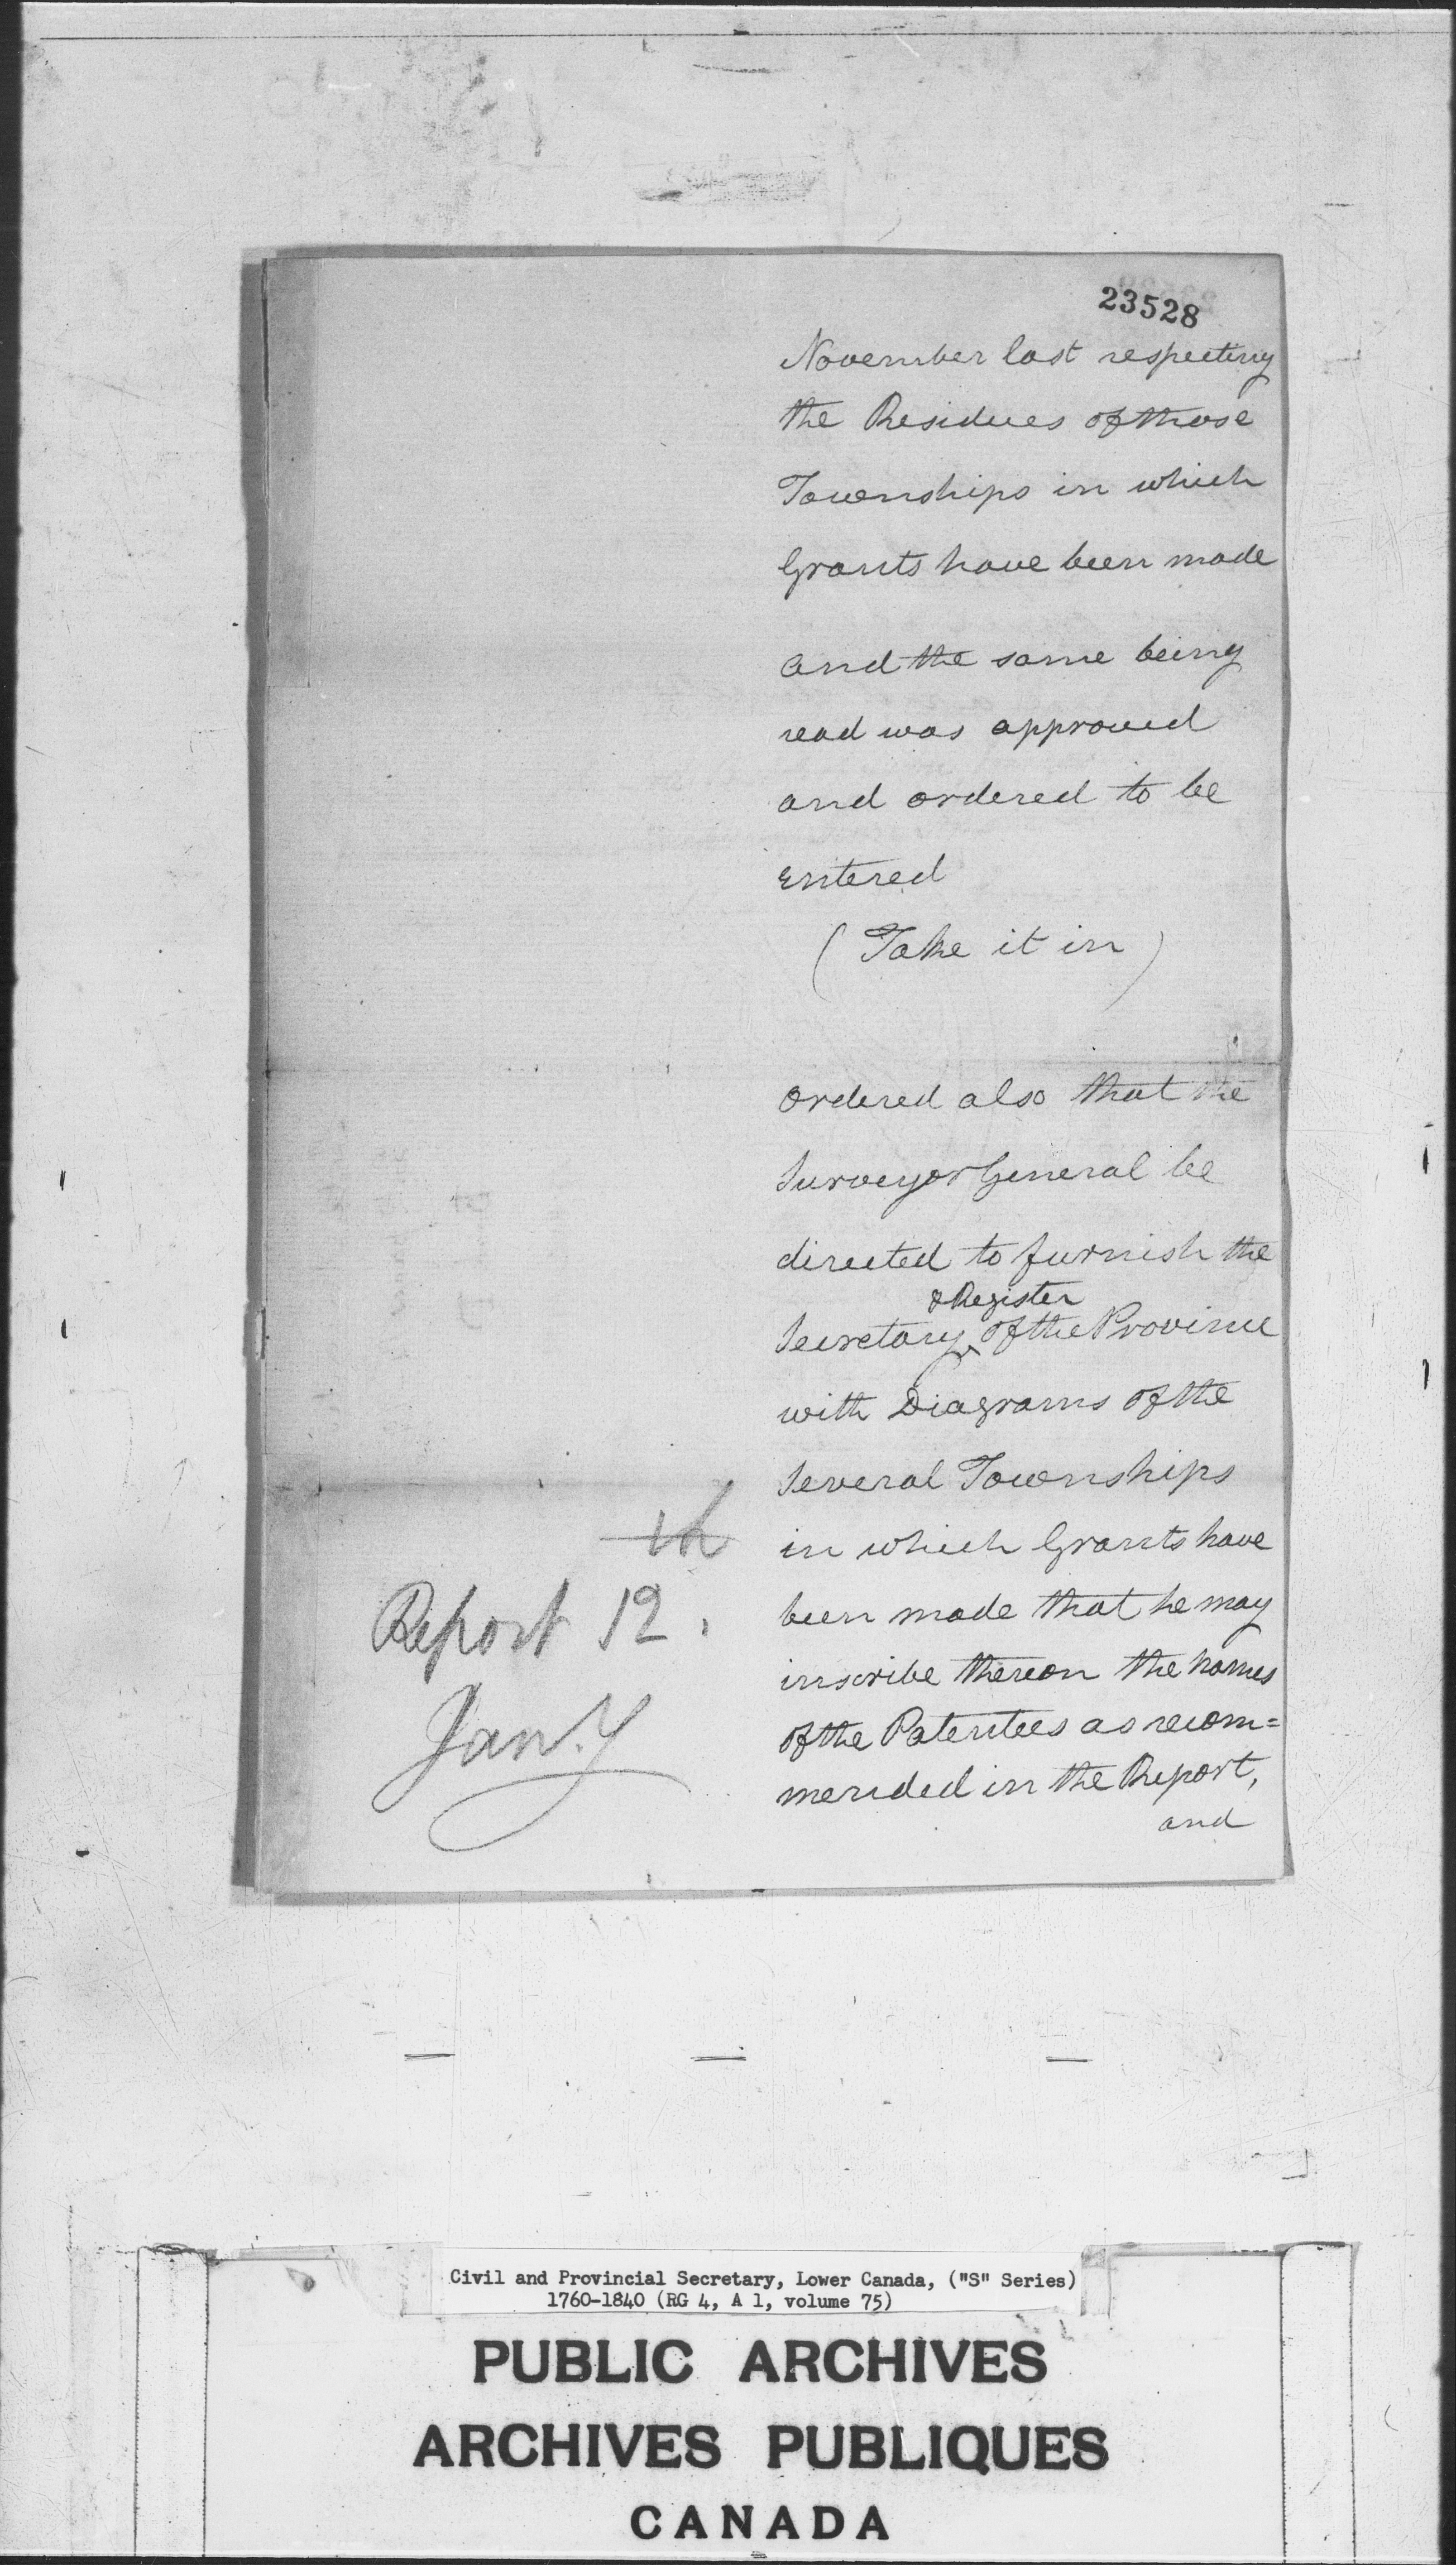 23528
November last respecting
the Residues of those
Townships in which
Grants have been made
and the same being
read was approved
and ordered to be
entered
( Take it in )
ordered also that the
Surveyor General be
directed to furnish the
& Register
Secretary ^ of the Province
with Diagrams of the
Several Townships
in which Grants have
been made that he may
inscribe thereon the names
of the Patentees as recom=
mended in the Report,
and
Report 12.
Jan.y
Civil and Provincial Secretary, Lower Canada, ("S" Series)
1760-1840 (RG 4, A 1, volume 75)
PUBLIC ARCHIVES
ARCHIVES PUBLIQUES
CANADA